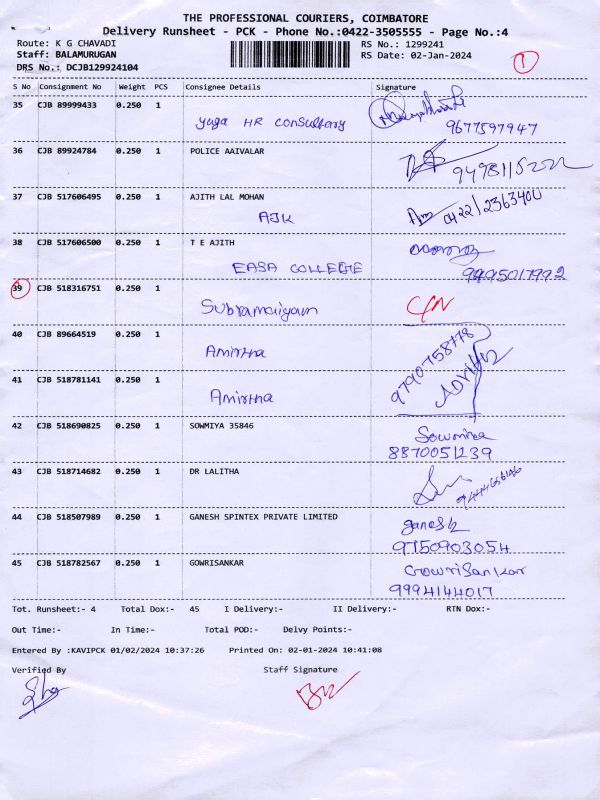 THE PROFESSIONAL COURIERS, COIMBATORE
Delivery Runsheet - PCK - Phone No.:0422-3505555 - Page No.:4
Route: K G CHAVADI
RS No.: 1299241
Staff: BALAMURUGAN
RS Date: 02-Jan-2024
DRS No.: DCJB129924104
1
S No Consignment No Weight PCS Consignee Details Signature
35 CJB 89999433 0.250 1
yuga HR consultancy
9677597947
36 CJB 89924784 0.250 1 POLICE AAIVALAR
37 CJB 517606495 0.250 1 AJITH LAL MOHAN
AJK 0422/2363400
38 CJB 517606500 0.250 1 T E AJITH
EASA COLLEGE
39 CJB 518316751 0.250 1
40 CJB 89664519 0.250 1
Amirtha 9790758778
41 CJB 518781141 0.250 1
Amirtha
42 CJB 518690825 0.250 1 SOWMIYA 35846
Sowmiya
8870051239
43 CJB 518714682 0.250 1 DR LALITHA
44 CJB 518507989 0.250 1 GANESH SPINTEX PRIVATE LIMITED
ganesh
9750903054
45 CJB 518782567 0.250 1 GOWRISANKAR
Gowrisankar
9994144017
Tot. Runsheet:- 4 Total Dox:- 45 I Delivery:- II Delivery:- RTN Dox:-
Out Time:- In Time:- Total POD:- Delvy Points:-
Entered By :KAVIPCK 01/02/2024 10:37:26 Printed On: 02-01-2024 10:41:08
Verified By Staff Signature